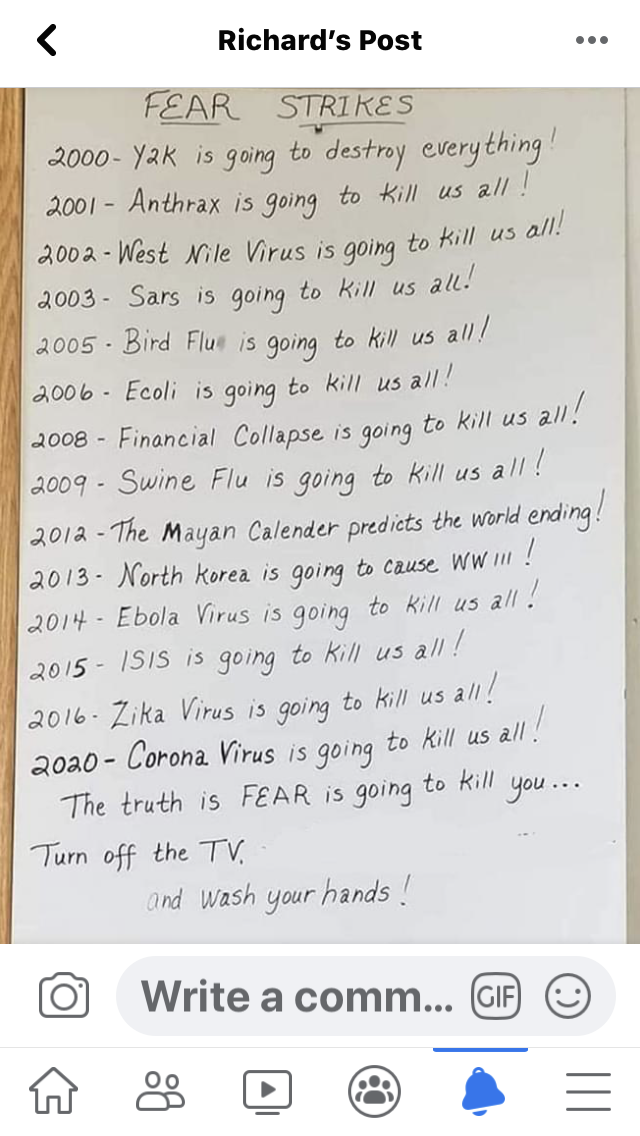 Richard's Post
FEAR STRIKES
2000- Y2K is going to destroy everything!
2001 - Anthrax is going to kill us all!
2002 - West Nile Virus is going to kill us all!
2003 - Sars is going to kill us all!
2005 - Bird Flu is going to kill us all!
2006 - Ecoli is going to kill us all!
2008 - Financial Collapse is going to kill us all!
2009 - Swine Flu is going to kill us all!
2012 - The Mayan Calender predicts the world ending!
2013 - North Korea is going to cause WW III!
2014 - Ebola Virus is going to kill us all!
2015 - ISIS is going to kill us all!
2016 - Zika Virus is going to kill us all!
2020 - Corona Virus is going to kill us all!
The truth is FEAR is going to kill you...
Turn off the TV.
and wash your hands!
Write a comm...
GIF